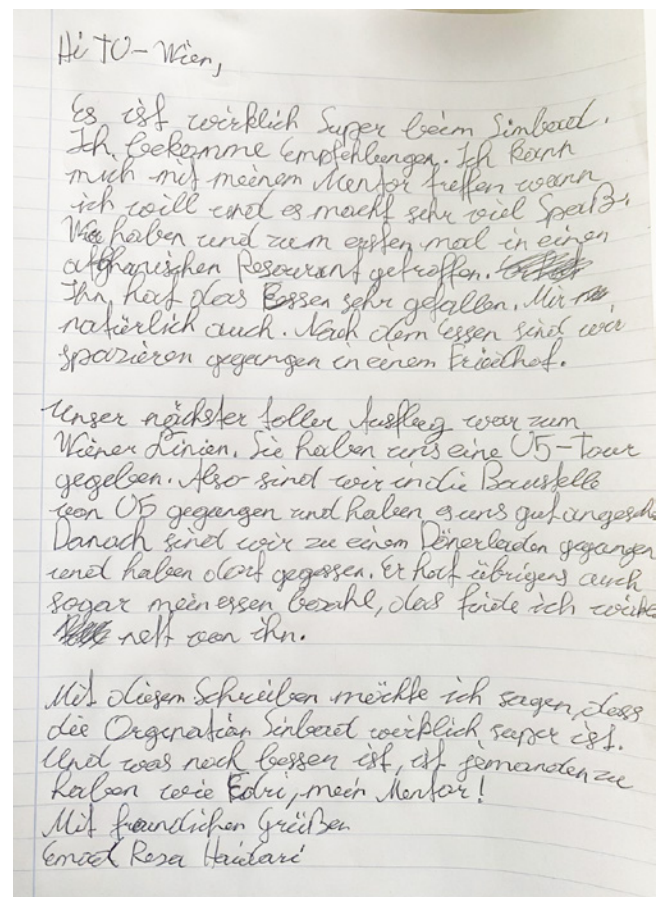 Hi TO-Wien,
Es ist wirklich Super beim Sindbad.
Ich bekomme Empfehlungen. Ich kann
mich mit meinem Mentor treffen wann
ich will und es macht sehr viel Spaß.
Wir haben und zum ersten mal in einen
afghanischen Resourant getroffen.
Ihn hat das Essen sehr gefallen. Mir
natürlich auch. Nach dem essen sind wir
spazieren gegangen in einem Friedhof.
Unser nächster toller Ausflug war zum
Wiener Linien. Sie haben uns eine U5-Tour
gegeben. Also sind wir in die Baustelle
von U5 gegangen und haben es uns gut
Danach sind wir zu einem Dönerladen gegangen
und haben dort gegessen. Er hat übrigens auch
sogar mein essen bezahl, das finde ich
nett von ihn.
Mit diesem Schreiben möchte ich sagen, dass
die Orgenation Sinbad wirklich super ist.
Und was noch bessen ist, ist jemanden zu
haben wie Edri, mein Mentor!
Mit freundlichen Grüßen
Emad Resa Haidari